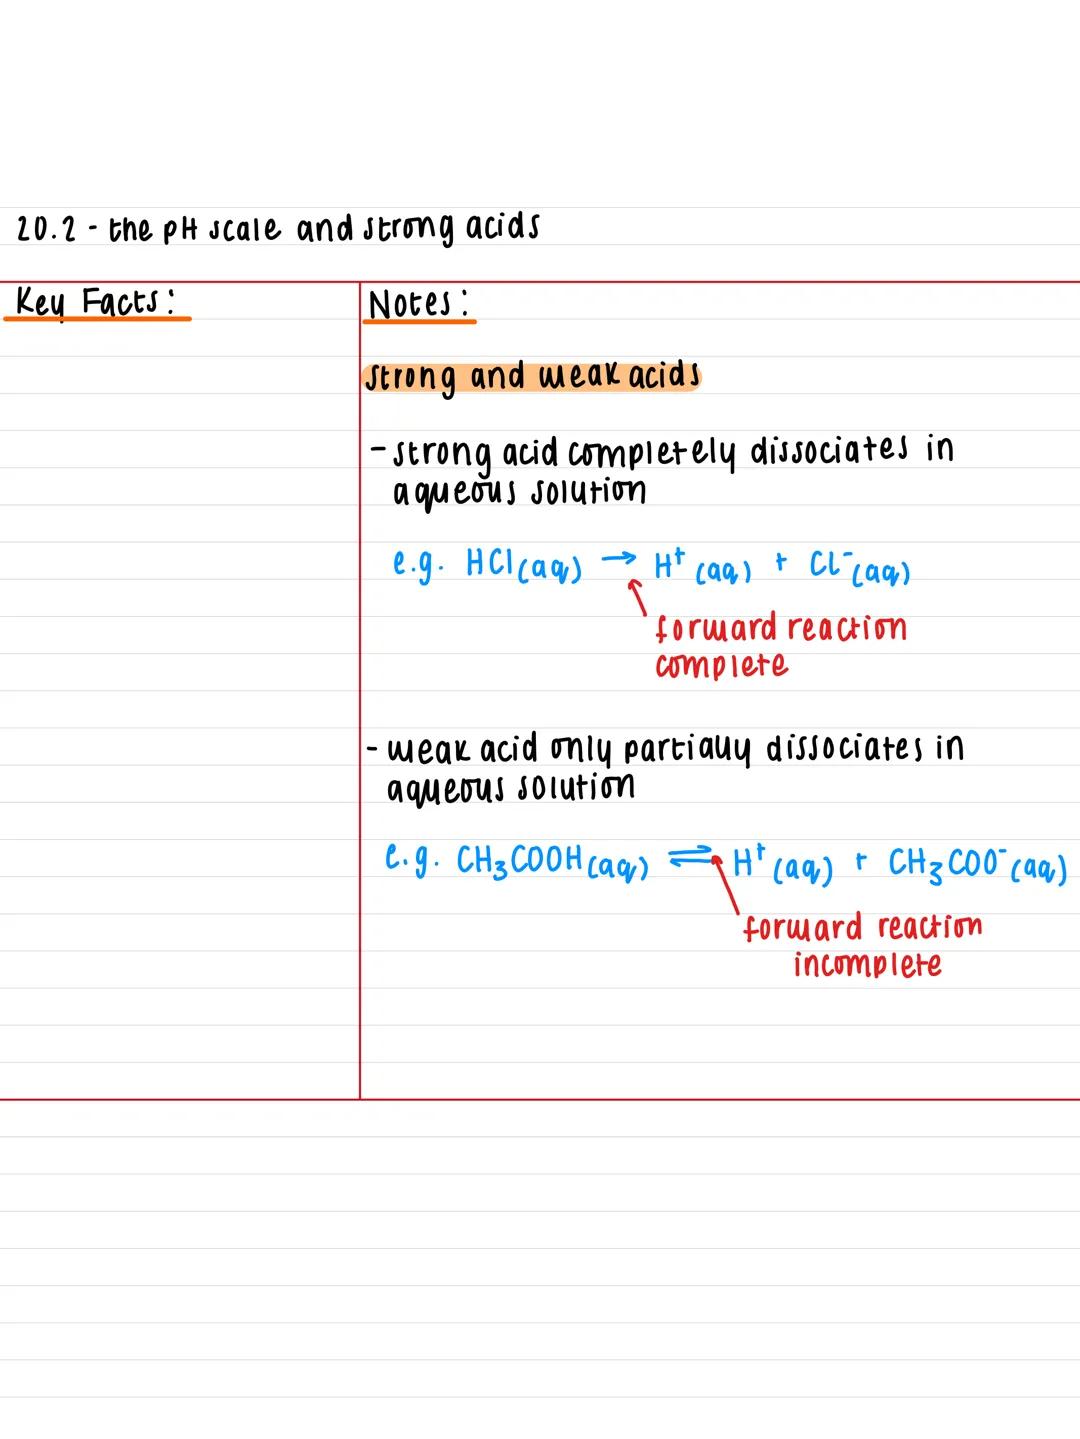 20.2 - the pH scale and strong acids
Key Facts:
Notes:
strong and weak acids
- strong acid completely dissociates in
aqueous solution
e.g. HCl(aq) → H⁺(aq) + Cl⁻(aq)
forward reaction
complete
- weak acid only partially dissociates in
aqueous solution
e.g. CH₃COOH(aq) ⇌ H⁺(aq) + CH₃COO⁻(aq)
forward reaction
incomplete